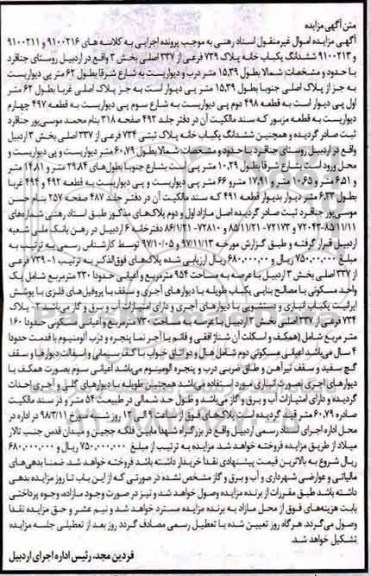 متن آگهی مزایده
آگهی مزایده اموال غیرمنقول اسناد رهنی به موجب پرونده اجرایی به کلاسه های ۹۱۰۰۲۱۶ و ۹۱۰۰۲۱۱
و ۹۱۰۰۲۱۳ ششدانگ یکباب خانه پلاک ۷۳۹ فرعی از ۳۳۷ اصلی بخش ۳ واقع در اردبیل روستای جناقرد
با حدود و مشخصات: شمالا بطول ۱۵٫۳۹ متر درب و دیواریست به شارع شرقا بطول ۶۲ متر پی دیواریست
به جز از پلاک اصلی جنوبا بطول ۱۵٫۳۹ متر پی دیوار است به جز پلاک اصلی غربا بطول ۶۲ متر
اول پی دیوار است به قطعه ۴۹۸ دوم پی دیواریست به شارع سوم پی دیواریست به قطعه ۴۹۷ چهارم
دیواریست به قطعه مزبور که سند مالکیت آن در دفتر جلد ۴۹۲ صفحه ۳۱۸ بنام محمد موسی‌پور جناقرد
ثبت صادر گردیده و همچنین ششدانگ یکباب خانه پلاک ثبتی ۷۳۴ فرعی از ۳۳۷ اصلی بخش ۳ اردبیل
واقع در اردبیل روستای جناقرد با حدود و مشخصات: شمالا بطول ۶۰٫۷۹ متر دیواریست و پی دیواریست و
محل ورود است بشارع شرقا بطول ۱۰٫۲۹ متر پی است بشارع جنوبا بطول‌های ۲۹٫۸۴ متر و ۱۴٫۸۱ متر
و ۶٫۵۱ متر و ۱۰٫۶۵ متر و ۱۷٫۹۱ مترو ۶۶ متر پی دیواریست و پی دیواریست به قطعه ۴۹۲ و ۴۹۴ غربا
بطول ۶٫۳۳ متر دیوار بدیوار قطعه ۴۹۱ که سند مالکیت آن در دفتر جلد ۴۸۷ صفحه ۲۵۷ بنام حسن
موسی‌پور جناقرد ثبت صادر گردیده اصل مازاد اول و دوم پلاک‌های مذکور طبق اسناد رهنی شماره‌های
۷۲۰۴۳-۸۵/۱۱/۲۱ و ۷۲۱۷۳-۸۵/۱۱/۲۱ و ۷۲۸۱۰-۸۶/۱/۲۱ دفترخانه ۶ اردبیل در رهن بانک ملی شعبه
اردبیل قرار گرفته و طبق گزارش مورخه ۹۷/۱۱/۱۳ و ۹۷/۱۰/۰۵ توسط کارشناس رسمی به ترتیب به
مبلغ ۷۵۰٫۰۰۰٫۰۰۰ ریال و ۶۸۰٫۰۰۰٫۰۰۰ ریال ارزیابی شده پلاک‌های فوق‌الذکر به ترتیب ۱- ۷۳۹ فرعی
از ۳۳۷ اصلی بخش ۳ اردبیل با عرصه به مساحت ۹۵۴ مترمربع و اعیانی حدودا ۲۳۰ مترمربع شامل یک
واحد مسکونی با مصالح بنایی یکباب طویله با دیوارهای آجری و سقف با پروفیل‌های فلزی با پوشش
ایرانیت یکباب انباری و دستشویی با دیوارهای آجری و دارای امتیازات آب و برق و گاز می‌باشد ۲- پلاک
۷۳۴ فرعی از ۳۳۷ اصلی بخش ۳ اردبیل با عرصه به مساحت ۷۳۰ مترمربع و اعیانی مسکونی حدودا ۱۶۰
متر مربع شامل (همکف و اسکلت آن شناژ افقی و قائم با آجر نما پنجره و درب آلومنیوم با قدمت حدودا
۴ سال می‌باشد اعیانی مسکونی دوم شامل هال و دو اتاق خواب با کف سیمانی و ایفالت دیوارها و سقف
گچ سفید و سقف تیرآهن و طاق ضربی درب و پنجره آلومنیوم می‌باشد اعیانی سوم بصورت همکف با
دیوارهای آجری بصورت انباری مورد استفاده می‌باشد همچنین طویله با دیوارهای گلی و آجری احداث
گردیده و دارای امتیازات آب و برق و گاز می‌باشد و طول حد شمالی در طبیعت ۵۴ متر و در سند مالکیت
صادره ۶۰٫۷۹ متر قید گردیده است پلاک‌های فوق از ساعت ۹ الی ۱۲ روز شنبه مورخ ۹۸/۳/۱۱ در اداره در
محل اداره اجرای اسناد رسمی اردبیل واقع در بزرگراه شهدا مابین فلکه ججین و میدان قدس جنب تالار
میلاد از طریق مزایده فروخته خواهد شد. مزایده به ترتیب از مبلغ ۷۵۰٫۰۰۰٫۰۰۰ ریال و ۶۸۰٫۰۰۰٫۰۰۰
ریال شروع به بالاترین قیمت پیشنهادی نقدا خریدار داشته باشد فروخته خواهد شد. ضمنا بدهی‌های
مالیاتی و عوارضی شهرداری و آب و برق و گاز مشخص نشده در صورتی که از این باب تا روز مزایده بدهی
داشته باشد طبق مقررات از برنده مزایده وصول خواهد شد و نیز در صورت وجود مازاد، وجوه پرداختی
بابت هزینه‌های فوق از محل مازاد به برنده مزایده مسترد خواهد شد و نیم عشر و حق مزایده نقدا
وصول می‌گردد. هرگاه روز تعیین شده با تعطیل رسمی مصادف گردد روز بعد از تعطیلی جلسه مزایده
تشکیل خواهد شد.
فردین مجد، رئیس اداره اجرای اردبیل